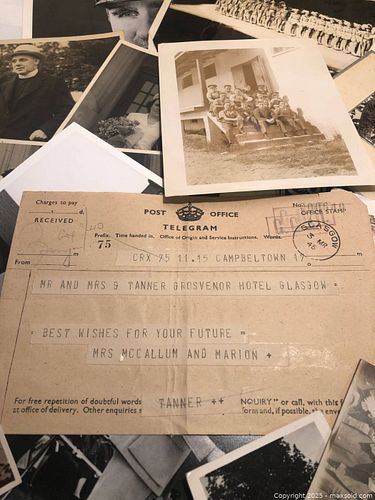 Charges to pay
s. d.
RECEIVED
From
POST OFFICE
TELEGRAM
Prefix. Time handed in. Office of Origin and Service Instructions. Words.
75
No.
OFFICE STAMP
GLASGOW
5 MR
45
CRX 75 11.15 CAMPBELTOWN 17
MR AND MRS G TANNER GROSVENOR HOTEL GLASGOW =
BEST WISHES FOR YOUR FUTURE =
MRS MCCALLUM AND MARION +
For free repetition of doubtful words
at office of delivery. Other enquiries
TANNER ++
NQUIRY" or call, with this
form and, if possible, the
Copyright 2025 - maxsold.com